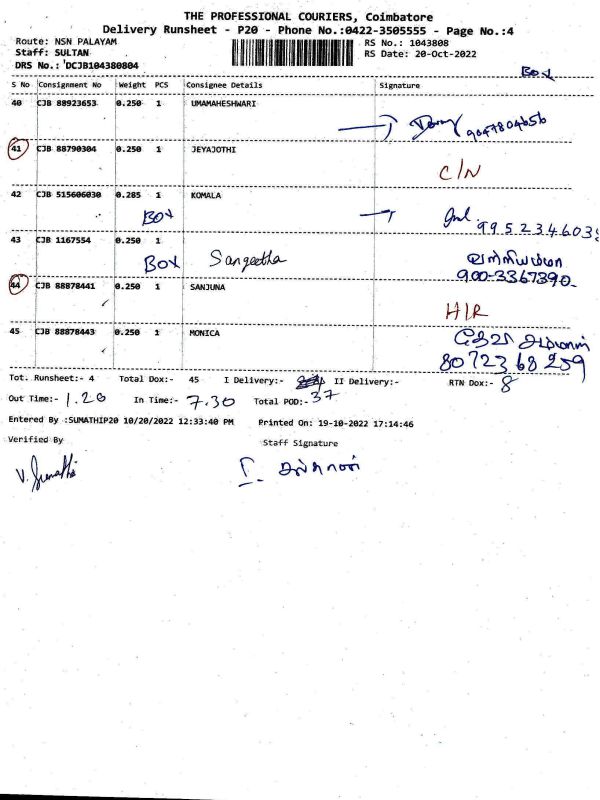 THE PROFESSIONAL COURIERS, Coimbatore
Delivery Runsheet - P20 - Phone No.:0422-3505555 - Page No.:4
Route: NSN PALAYAM
RS No.: 1043808
Staff: SULTAN
RS Date: 20-Oct-2022
DRS No.: DCJB104380804
Box
S No Consignment No Weight PCS Consignee Details Signature
40 CJB 88923653 0.250 1 UMAMAHESHWARI
9047804656
41 CJB 88790304 0.250 1 JEYAJOTHI
C/N
42 CJB 515606030 0.285 1 KOMALA
Box
995234603
43 CJB 1167554 0.250 1
Box Sangeetha
900-3367390
44 CJB 88878441 0.250 1 SANJUNA
H/R
45 CJB 88878443 0.250 1 MONICA
8072368259
Tot. Runsheet:- 4 Total Dox:- 45 I Delivery:- II Delivery:- RTN Dox:- 8
Out Time:- 1.20 In Time:- 7.30 Total POD:- 37
Entered By :SUMATHIP20 10/20/2022 12:33:40 PM Printed On: 19-10-2022 17:14:46
Verified By Staff Signature
V. Sumathi